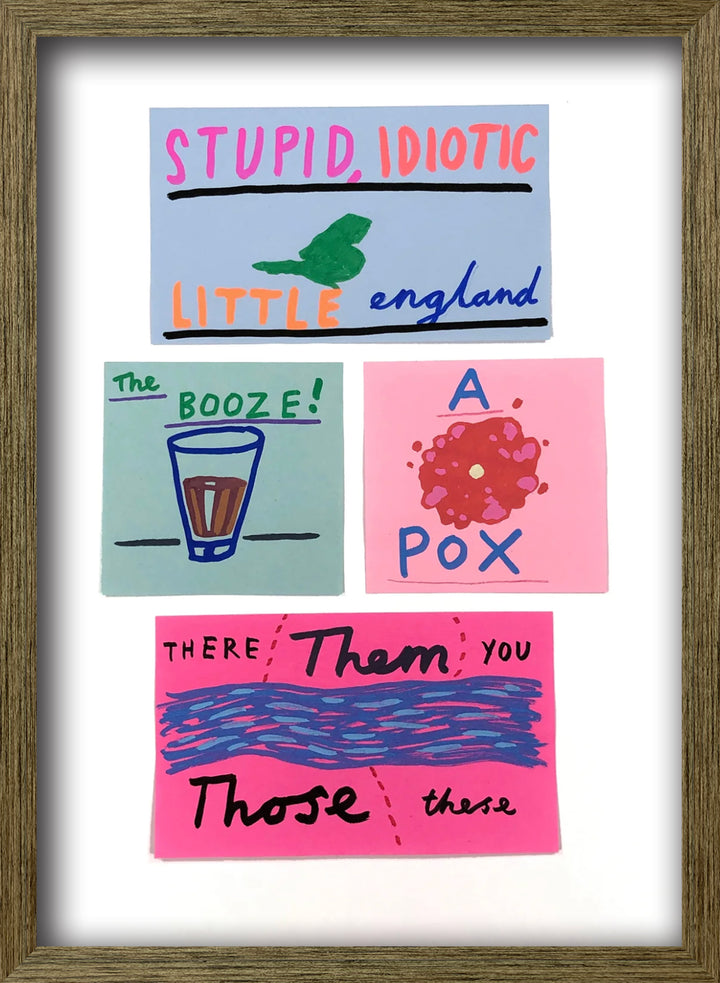 STUPID, IDIOTIC
LITTLE england
The
BOOZE!
A
POX
THERE Them YOU
Those these